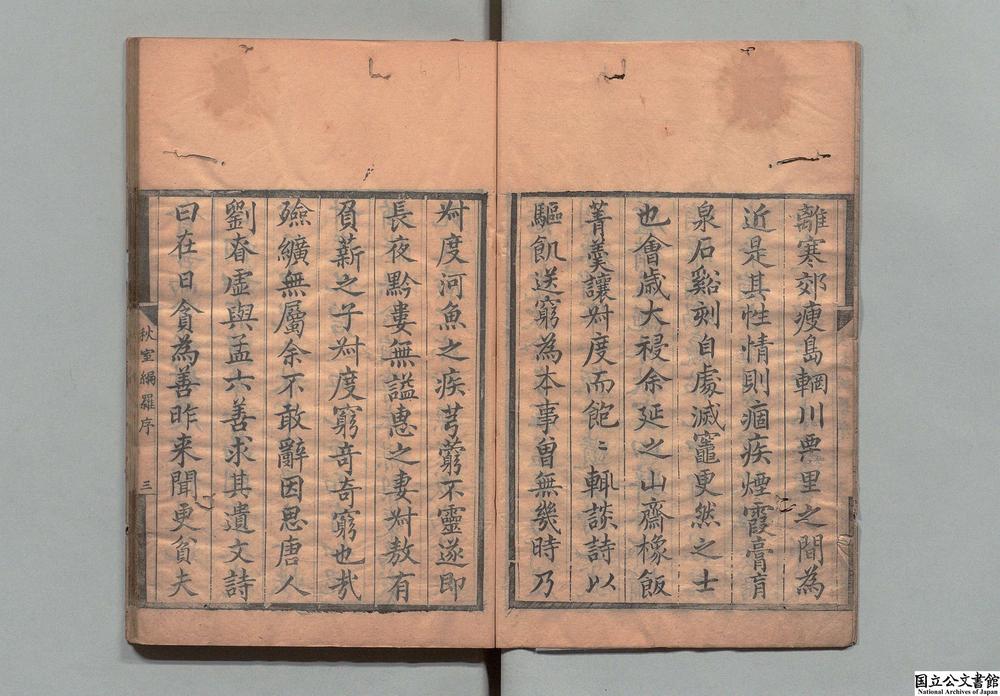 離寒郊瘦島輞川無里之間為
近是其性情則痼疾煙霞膏肓
泉石谿刻自處滅竈更然之士
也會歲大祲余延之山齋橡飯
菁羹讓尌度而飽〻輒談詩以
驅飢送窮為本事曽無幾時乃
尌度河魚之疾芎藭不靈遂即
長夜黔婁無謚惠之妻尌敖有
負薪之子尌度窮竒奇窮也㢤
殮纊無屬余不敢辭因思唐人
劉眘虛與孟六善求其遺文詩
曰在日貪為善昨来聞更貧夫
秋室編羅序
三
国立公文書館
National Archives of Japan